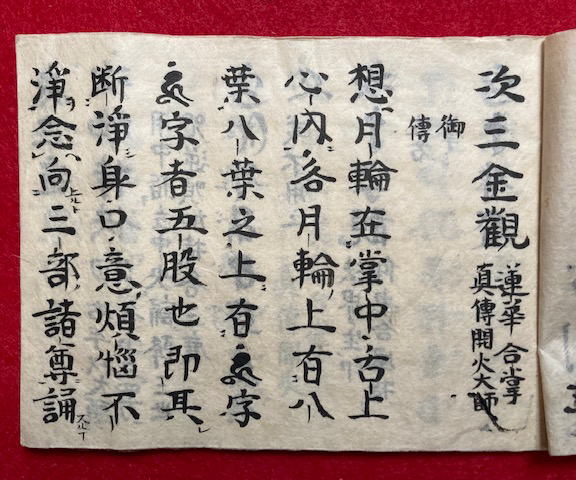 次三金觀
蓮華合掌
真傳開火大師
御傳
想月輪在掌中舌上
心内各月輪上有八
葉八葉之上有字
字者五股也即其
断淨身口意煩惱不
淨念向三部諸尊誦